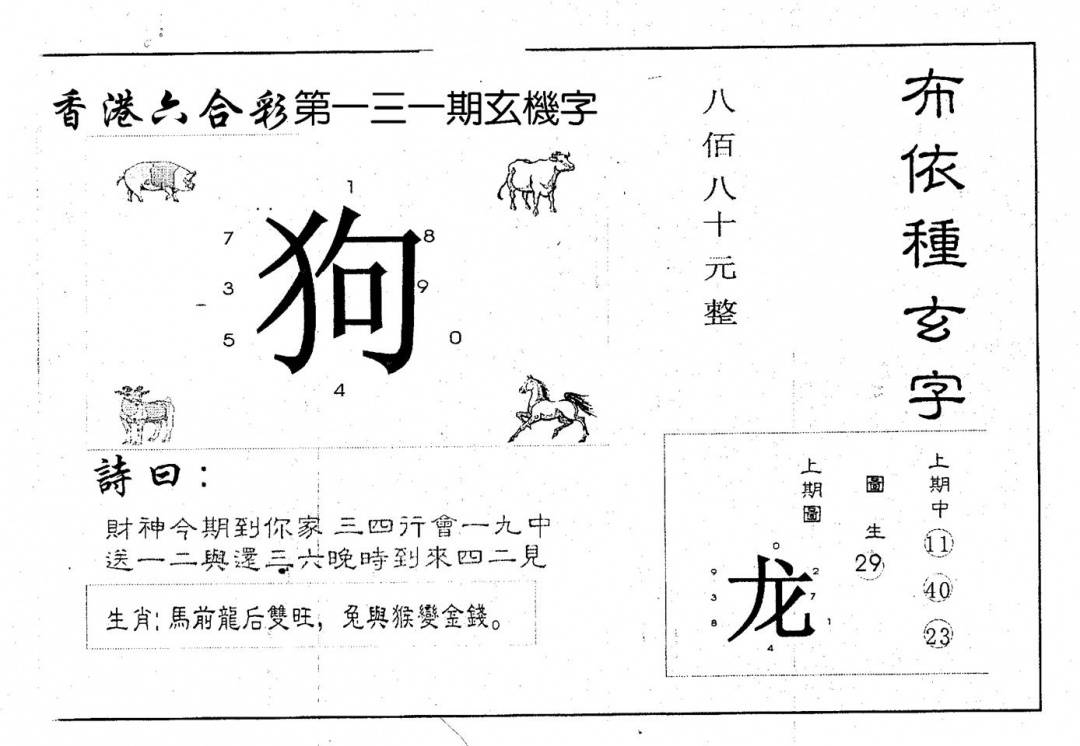 香港六合彩第一三一期玄機字
1
7
8
3
9
5
0
4
狗
詩曰：
財神今期到你家 三四行會一九中
送一二與還三六晚時到來四二見
生肖：馬前龍后雙旺，兔與猴變金錢。
八佰八十元整
布依種玄字
上期中
11
40
23
圖生
29
上期圖
0
9
2
3
7
8
1
4
龙